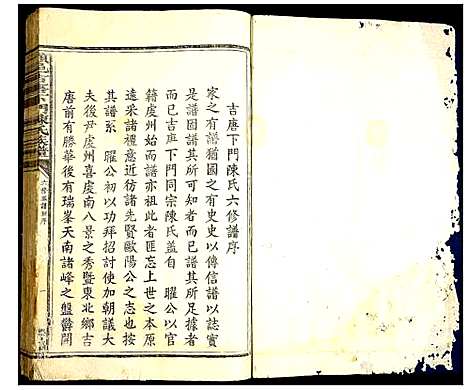 吉唐下門陳氏六修譜序
家之有譜猶國之有史史以傳信譜以誌實
是譜固其譜而所見者其所足據者
已吉唐下門同宗陳氏蓋自 曜公以官
籍虔州始而譜亦祖此者匪忘上世之本原
遠采諸禮意近彷諸先賢歐陽公之志也
其譜系 曜公初以功拜招討使加朝議大
夫後尹虔州喜虔南八景之秀暨東北鄉吉
唐前有勝華後有瑞峯天南諸峰之盤鬱開
陳氏族譜
六修族譜 序
一